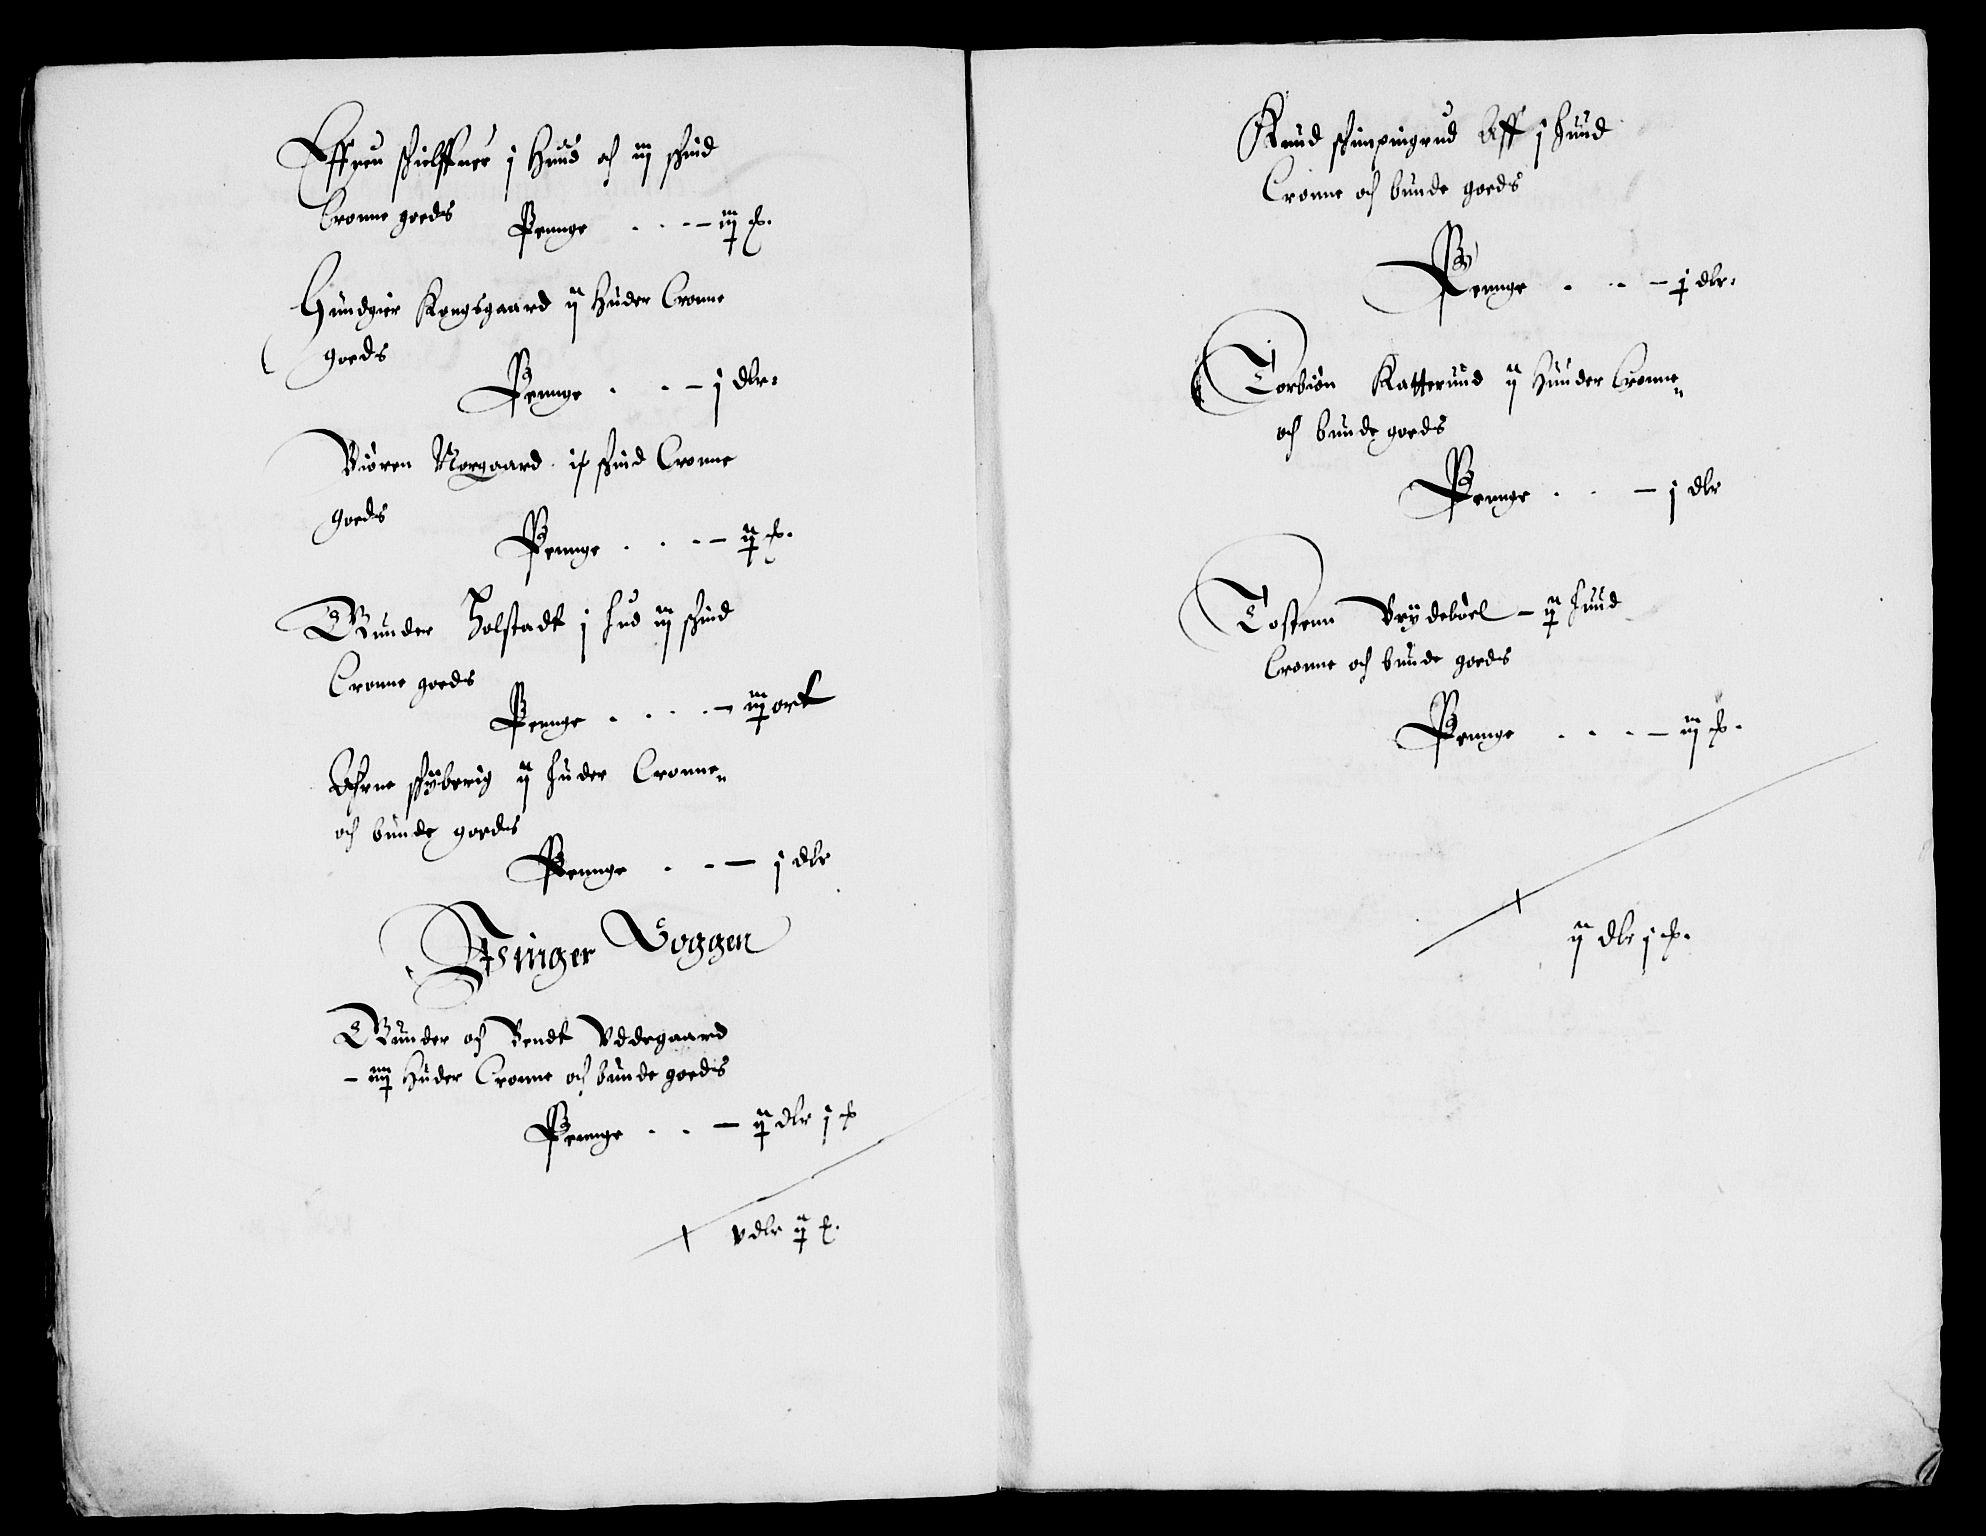 Effuen schielffner j Huud och iij schind
Cronne goeds Pennge . . . – iij ß.
Gundgier Kongsgaard ij Huder Cronne
goeds
Pennge . . – j dlr.
Biören Norgaard. ix schind Cronne
goeds
Pennge . . . – ij ß.
Gunder Holstadt j hud iij schind
Cronne goeds
Pennge . . . . – iij ort
Arne schÿberig ij huder Cronne
och bunde goeds
Pennge . . – j dlr
Goggen
Gunder och Bendt Vddegaard
– iiij Huder Cronne och bunde goeds
Pennge . . – ij dlr j ß
v dlr ij ß.
Knud schimpingrud Aff j huud
Cronne och bunde goeds
Pennge . . – j dlr.
Torbiön Katterund ij Huuder Cronne
och bunde goeds
Pennge . . – j dlr
Tostenn Brÿdeböel – ij huud
Cronne och bunde goeds
Pennge . . . – iij ß.
ij dlr j ß.